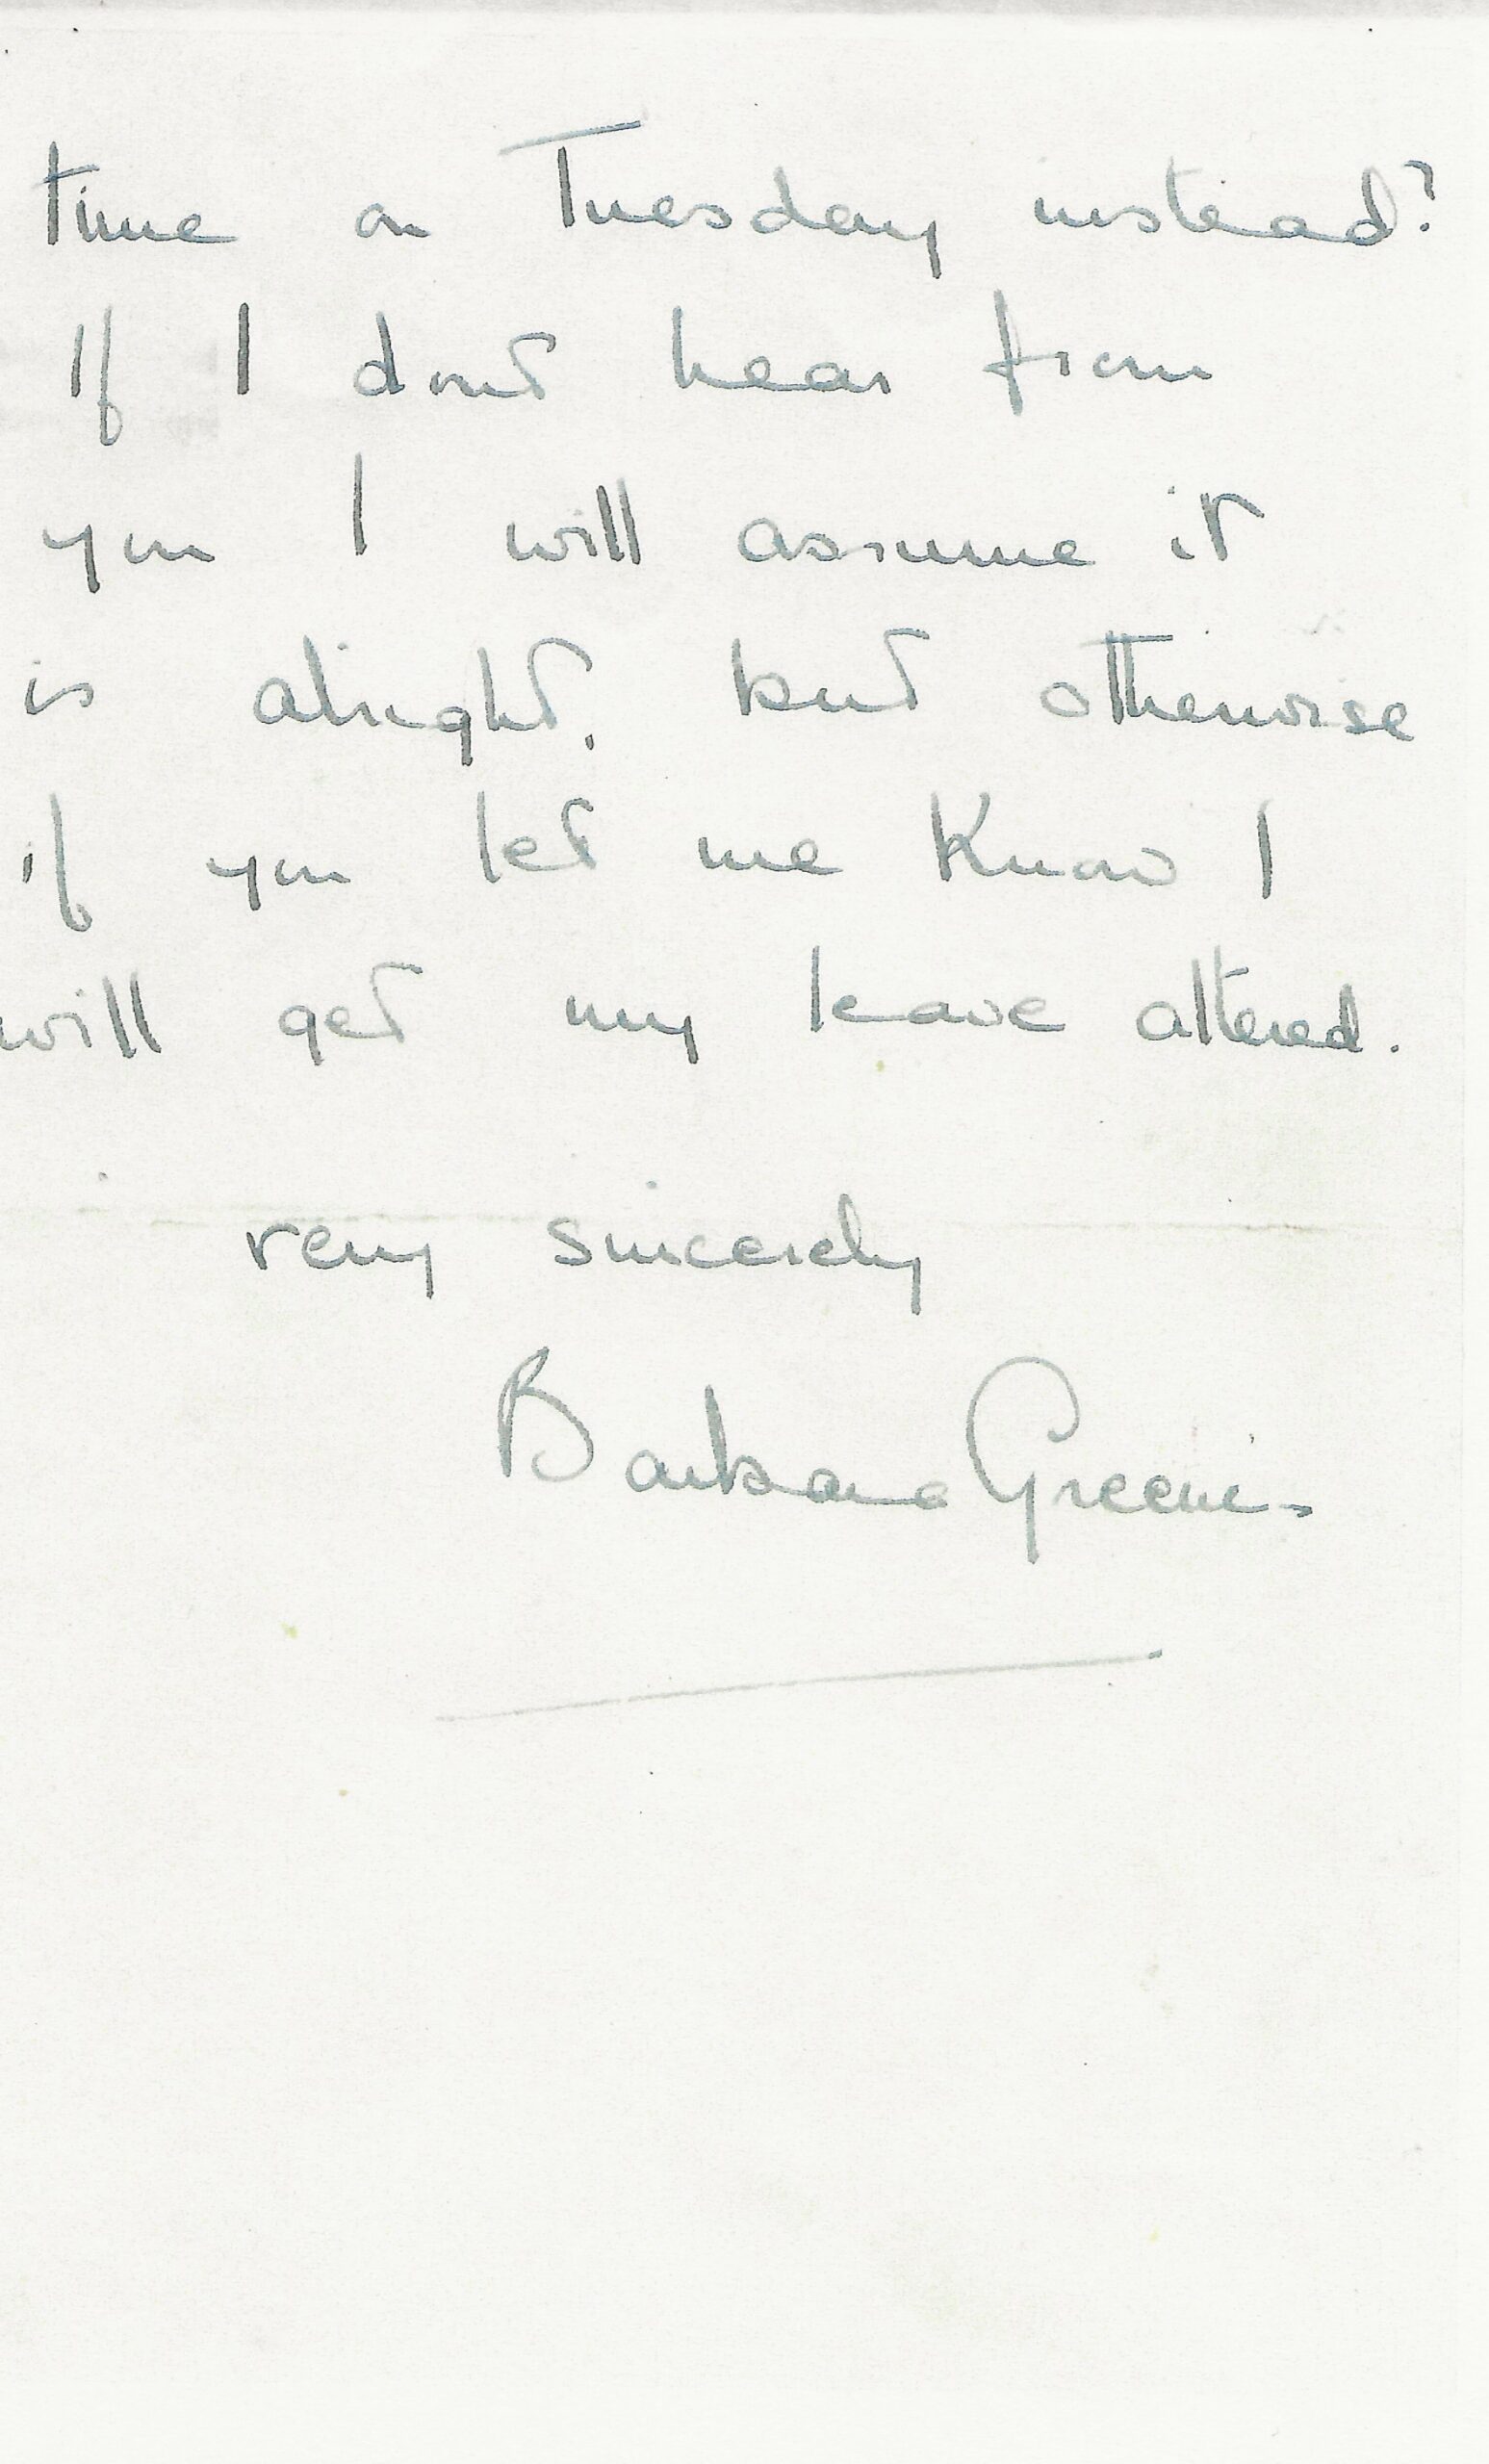 time on Tuesday instead?
If I dont hear from
you I will assume it
is alright. but otherwise
if you let me know I
will get my leave altered.
very sincerely
Barbara Greene.